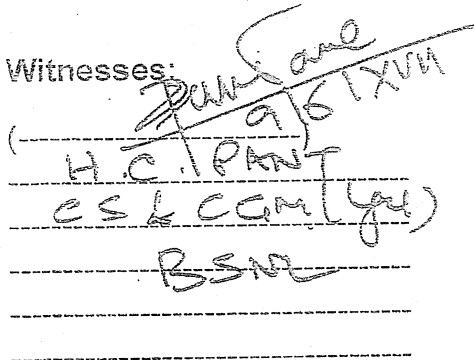 Witnesses:
9/6/XVII
(
H.C. PANT
CS & CGM (
BSNL